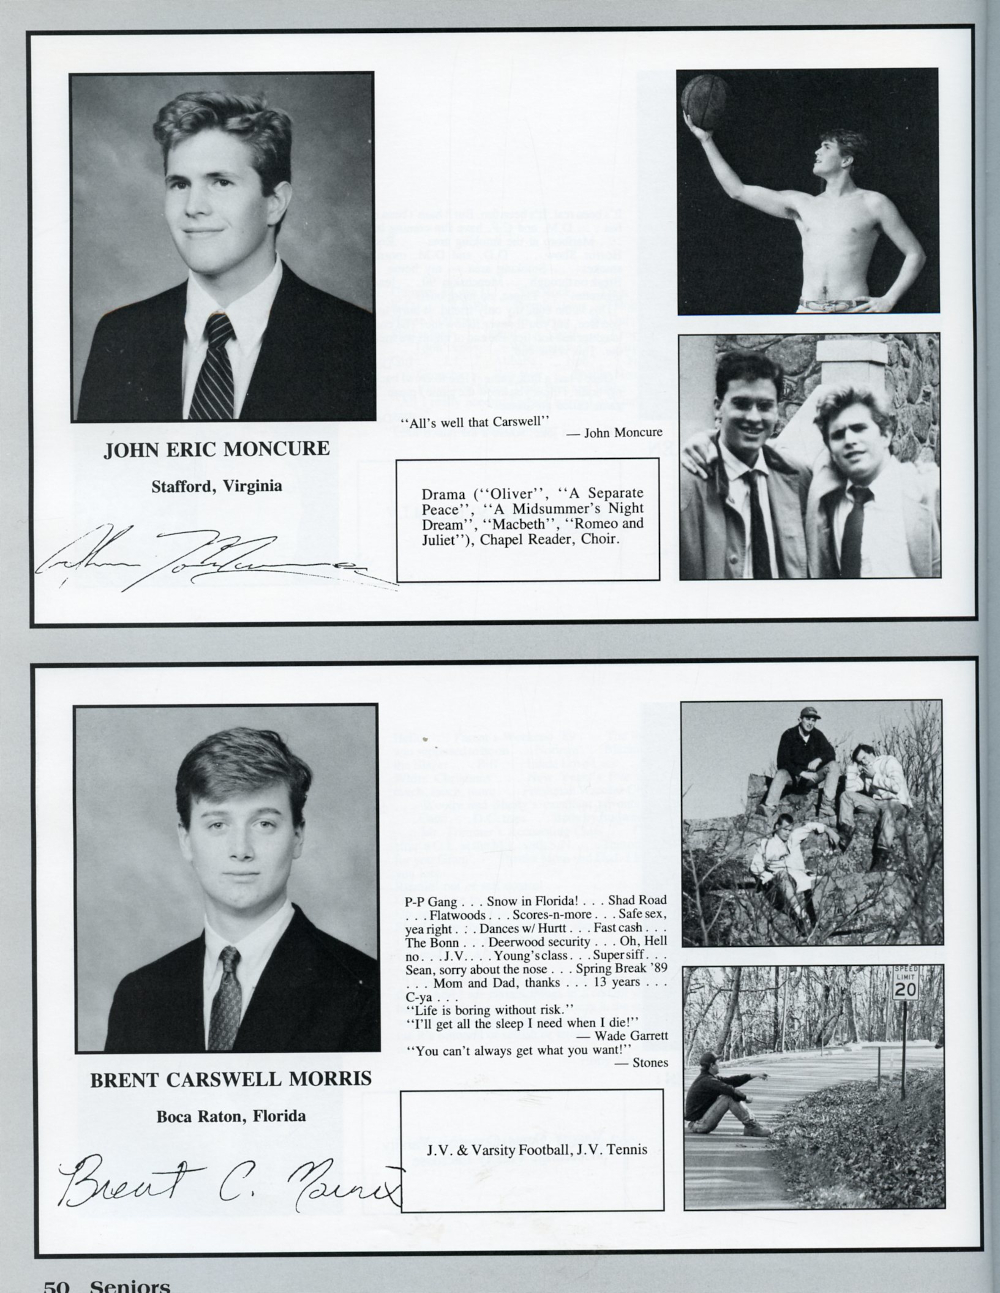 "All's well that Carswell"
— John Moncure
JOHN ERIC MONCURE
Stafford, Virginia
Drama ("Oliver", "A Separate
Peace", "A Midsummer's Night
Dream", "Macbeth", "Romeo and
Juliet"), Chapel Reader, Choir.
P-P Gang . . . Snow in Florida! . . . Shad Road
. . . Flatwoods . . . Scores-n-more . . . Safe sex,
yea right . . . Dances w/ Hurtt . . . Fast cash . . .
The Bonn . . . Deerwood security . . . Oh, Hell
no . . . J.V. . . . Young's class . . . Super siff . . .
Sean, sorry about the nose . . . Spring Break '89
. . . Mom and Dad, thanks . . . 13 years . . .
C-ya . . .
"Life is boring without risk."
"I'll get all the sleep I need when I die!"
— Wade Garrett
"You can't always get what you want!"
— Stones
SPEED
LIMIT
20
BRENT CARSWELL MORRIS
Boca Raton, Florida
J.V. & Varsity Football, J.V. Tennis
Brent C. Morris
50 Seniors